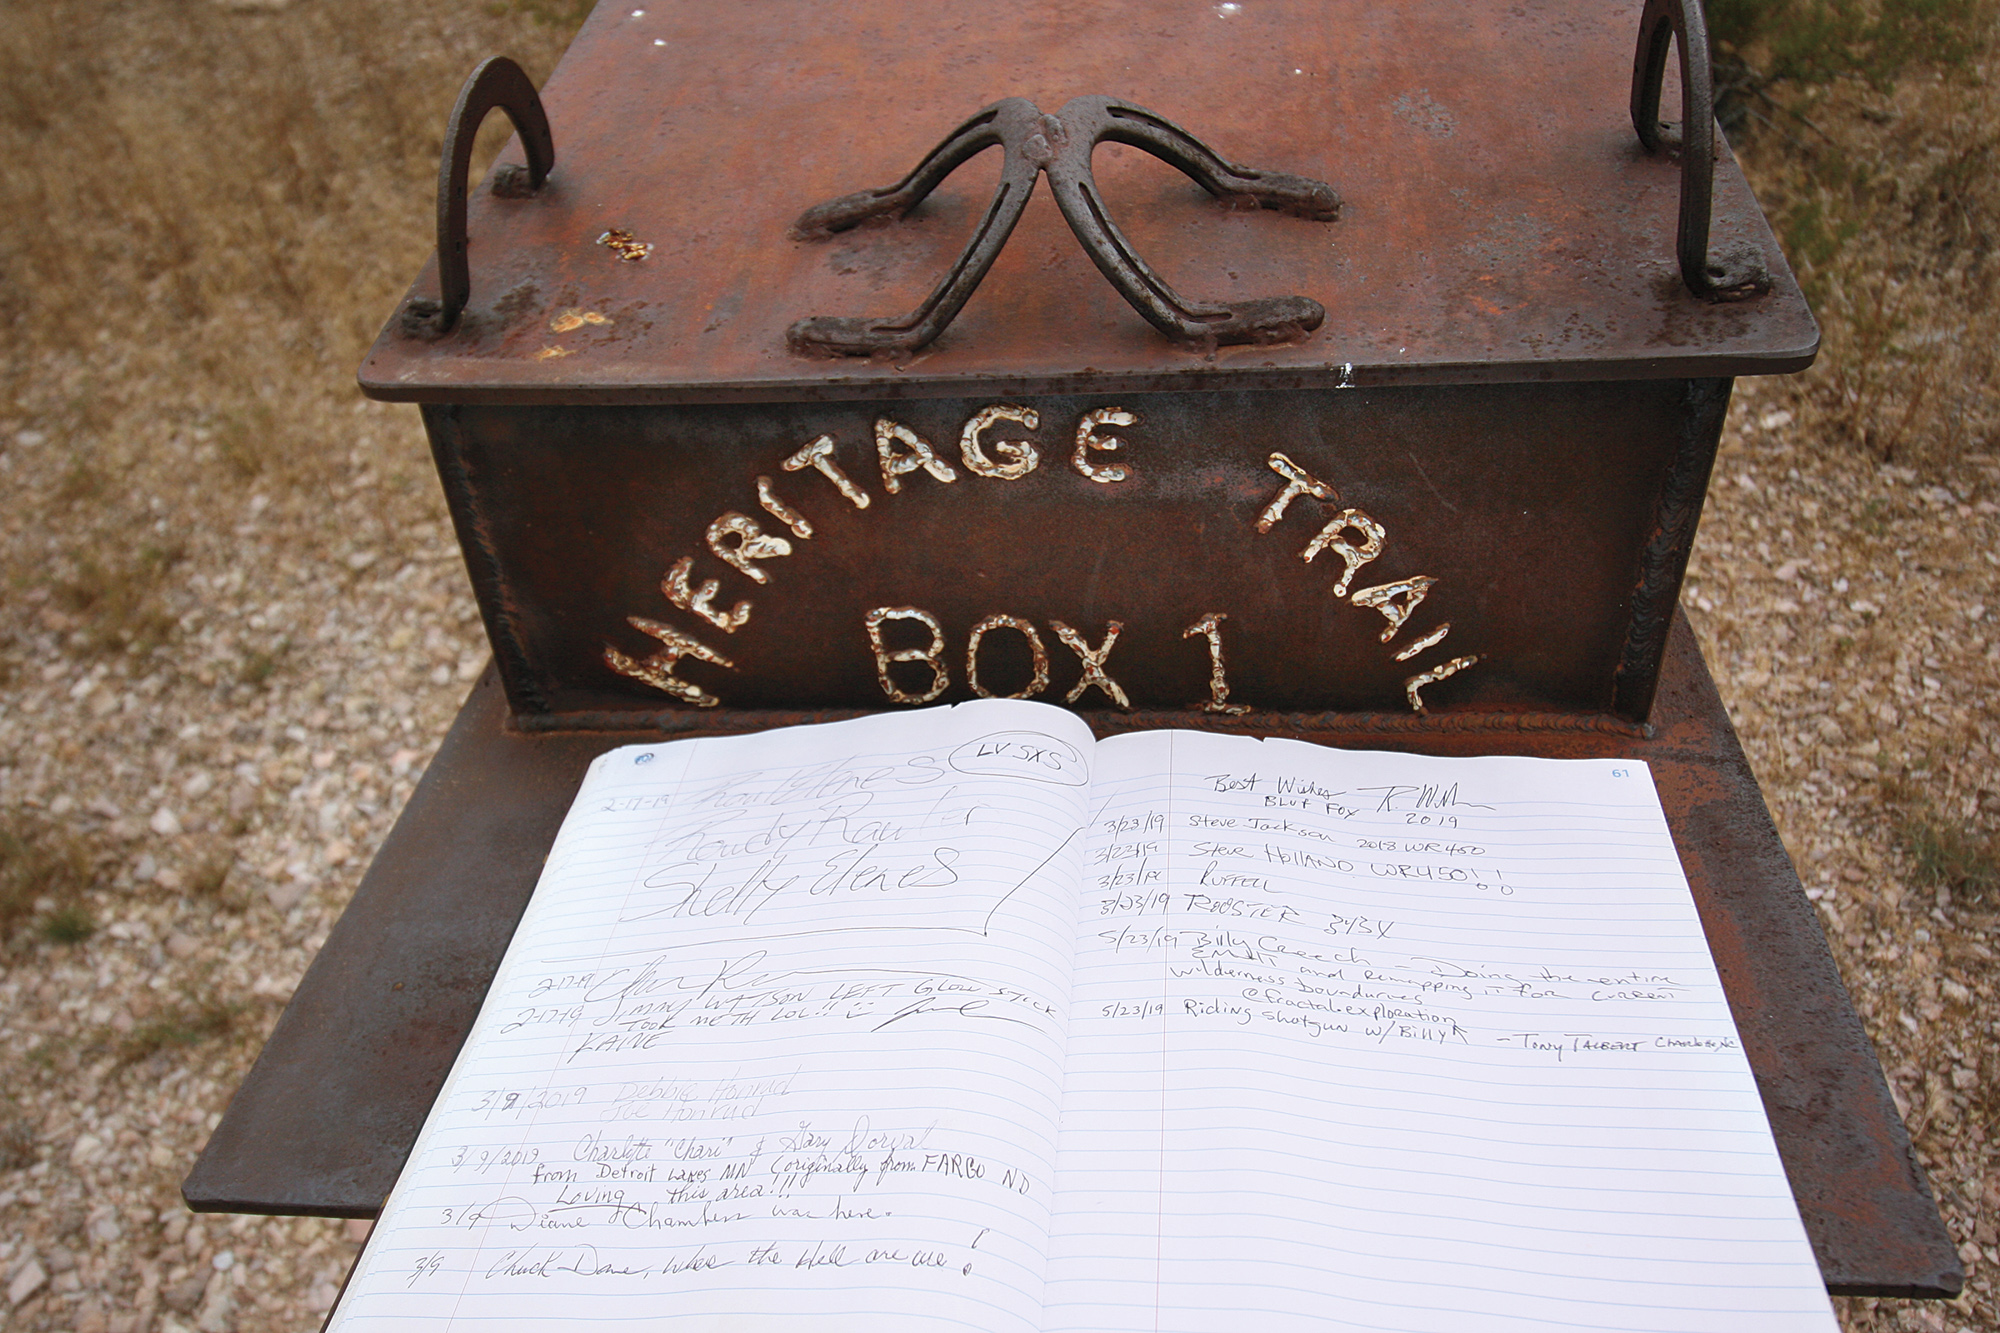 HERITAGE TRAIL
BOX 1
LV SXS
2-17-19
Shelly Elenes
2-17-19
2-17-19 Jimmy WATSON LEFT GLOW STICK
TOOK METH LOL!!!
KAINE
3/9/2019 Debbie Honrud
Joe Honrud
3/9/2019 Charlotte "Chari" & Gary Dorval
from Detroit Lakes MN (originally from FARGO ND
Loving this area!!!
3/9 Diane Chambers was here.
3/9 Chuck Dane, where the Hell are we!
61
Best Wishes
BLUE FOX
2019
3/23/19 Steve Jackson 2018 WR450
3/23/19 Steve HOLLAND WR450!!
3/23/19 RUFFELL
3/23/19 ROOSTER
5/23/19 Billy Creech - Doing the entire
EMHT and remapping it for current
wilderness boundurves
@fractal.exploration
5/23/19 Riding shotgun w/ Billy
- Tony TALBERT Charlotte, NC